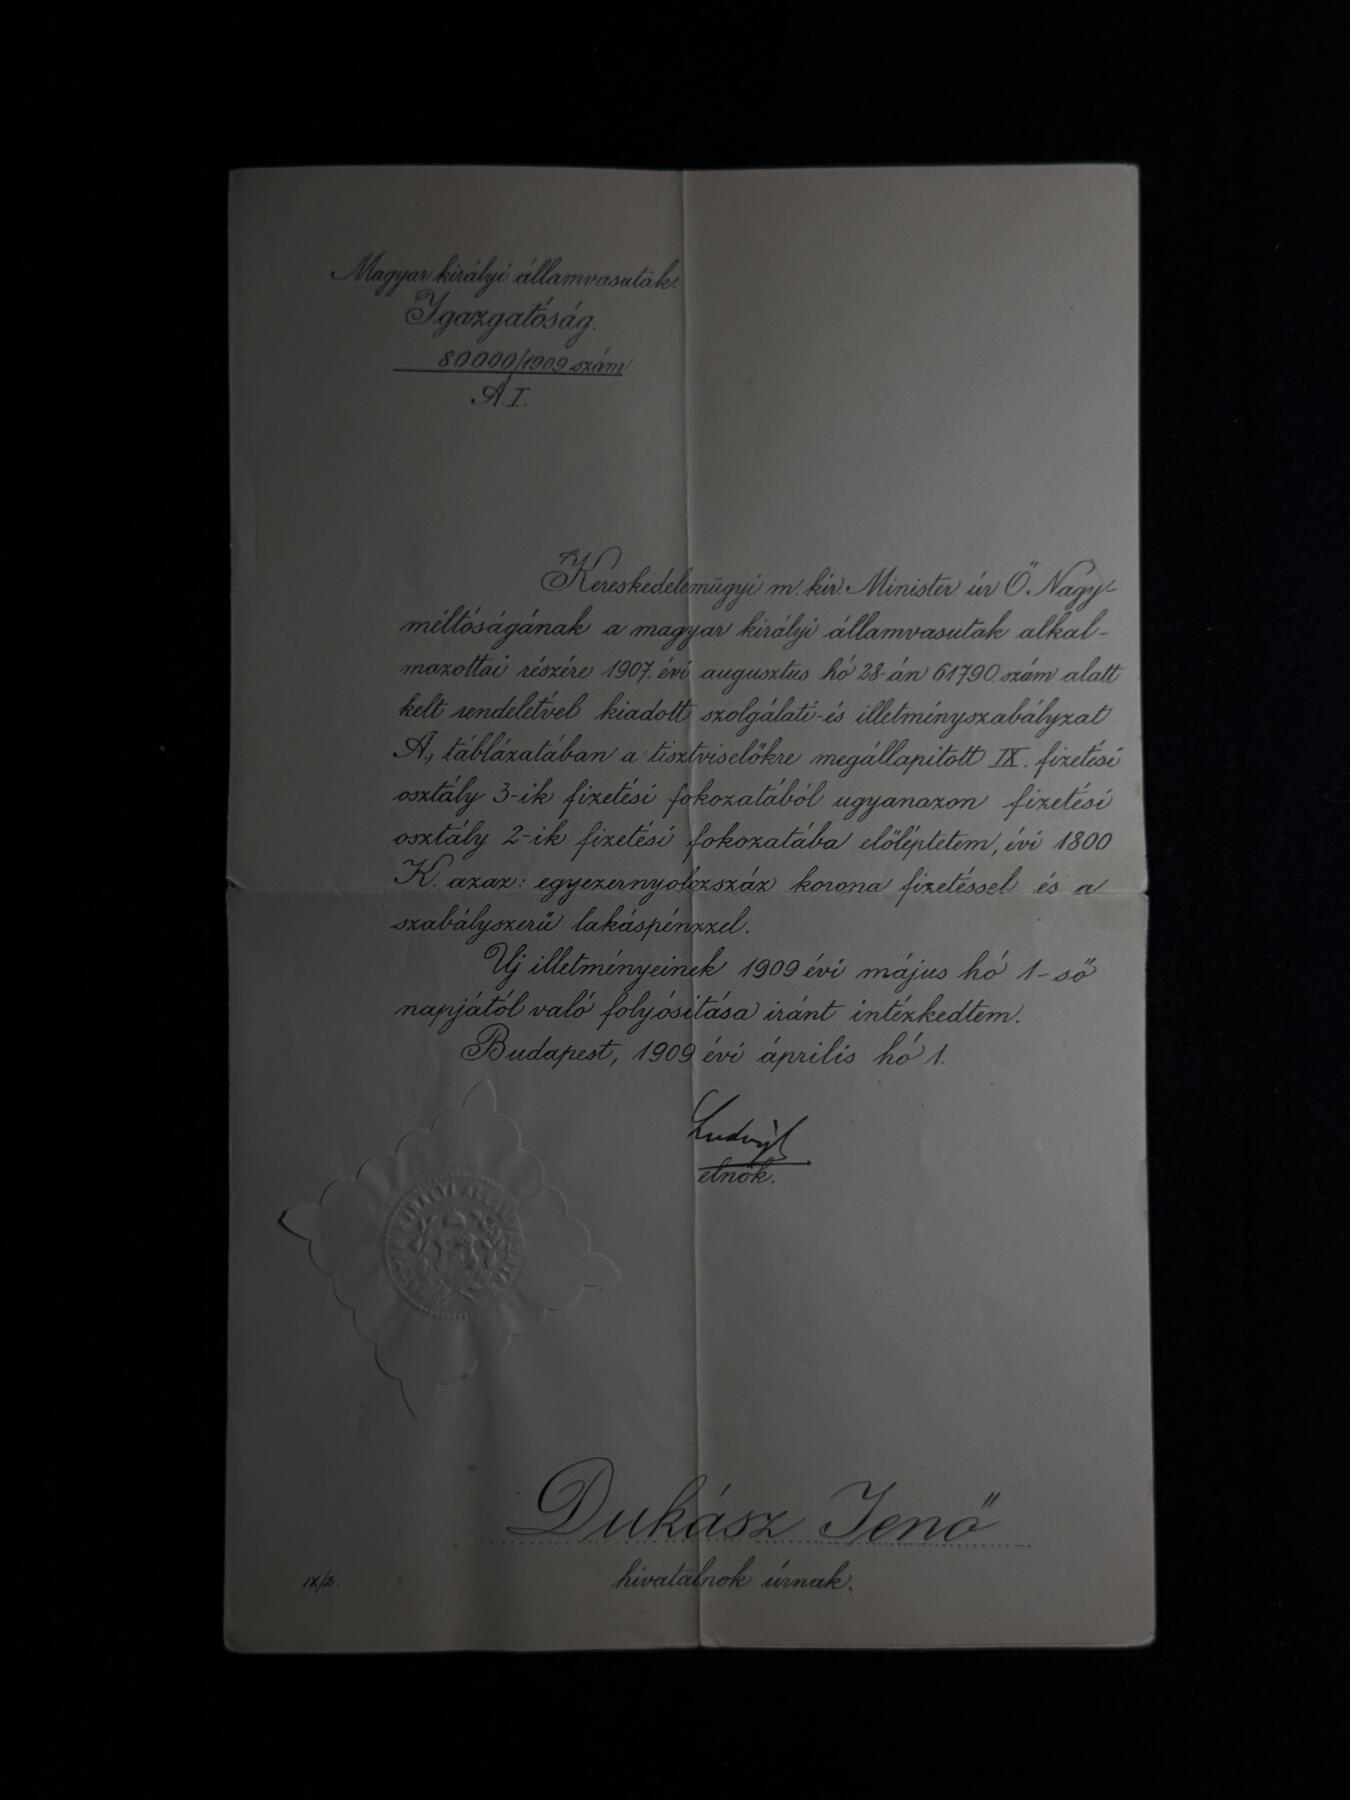 Magyar királyi államvasutak.
Igazgatóság.
80000/1909 szám
A.I.
Kereskedelemügyi m. kir. Minister úr Ő Nagy-
méltóságának a magyar királyi államvasutak alkal-
mazottai részére 1907. évi augusztus hó 28-án 61790. szám alatt
kelt rendeletével kiadott szolgálati-és illetményszabályzat
A., táblázatában a tisztviselőkre megállapitott IX. fizetési
osztály 3-ik fizetési fokozatából ugyanazon fizetési
osztály 2-ik fizetési fokozatába előléptetem, évi 1800
K. azaz: egyezernyolczszáz korona fizetéssel és a
szabályszerű lakáspénzzel.
Uj illetményeinek 1909 évi május hó 1-ső
napjától való folyósitása iránt intézkedtem.
Budapest, 1909 évi április hó 1.
Ludvigh
elnök.
KIRÁLYI ÁLLAMVASUTAK
Dukász Jenő
hivatalnok úrnak.
IX/2.